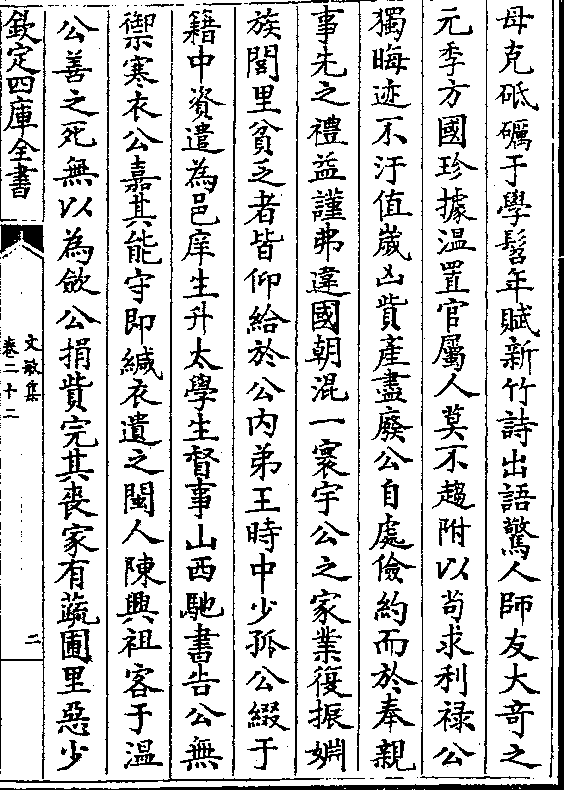 母克砥礪于學髫年賦新竹詩出語驚人師友大竒之
元季方國珍據温置官屬人莫不趨附以茍求利禄公
獨晦迹不汙值嵗凶貲產盡廢公自處儉約而於奉親
事先之禮益謹弗違國朝混一寰宇公之家業復振婣
族閭里貧乏者皆仰給於公内弟王時中少孤公綴于
籍中資遣為邑庠生升太學生督事山西馳書告公無
禦寒衣公嘉其能守即緘衣遺之閩人陳興祖客于温
公善之死無以為斂公捐貲完其喪家有蔬圃里惡少
欽定四庫全書
文敏集
卷二十二
二